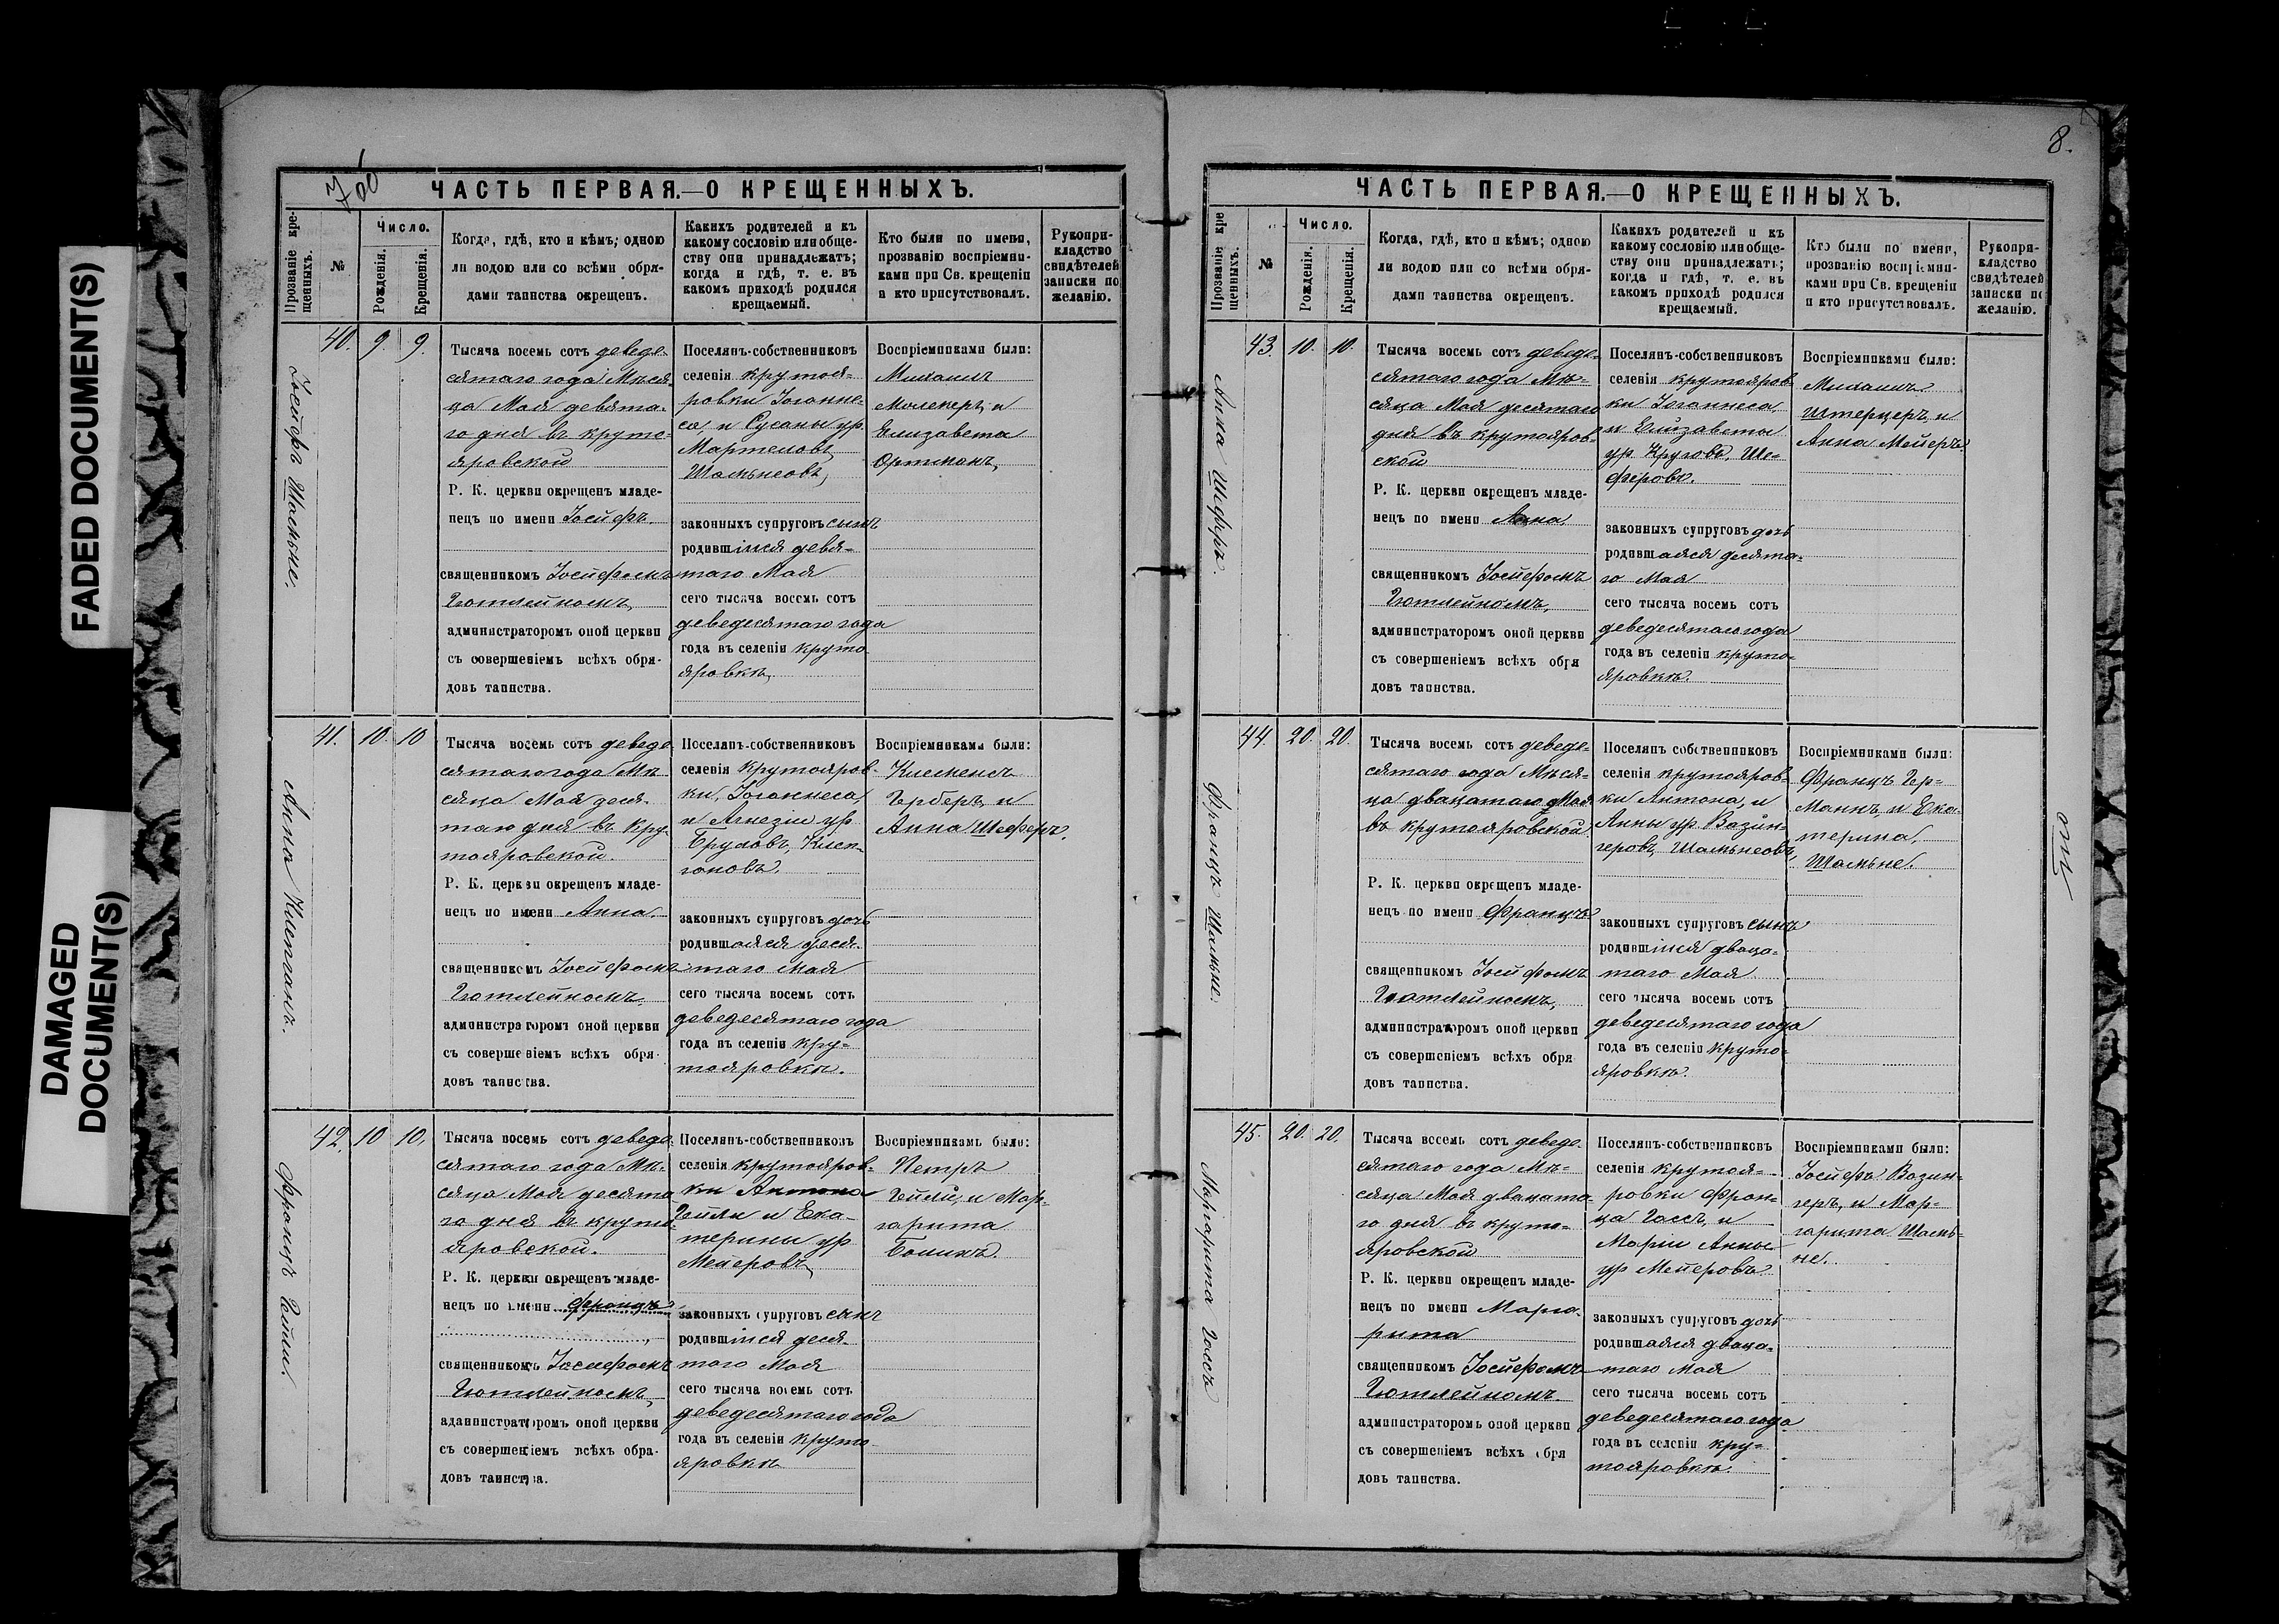 FADED DOCUMENT(S)
DAMAGED
DOCUMENT(S)
ЧАСТЬ ПЕРВАЯ.—О КРЕЩЕННЫХЪ.
Прозваніе кре-
щенныхъ.
№
Число.
Рожденія.
Крещенія.
Когда, гдѣ, кто и кѣмъ; одною
ли водою или со всѣми обря-
дами таинства окрещенъ.
Какихъ родителей и къ
какому сословію или обще-
ству они принадлежатъ;
когда и гдѣ, т. е. въ
какомъ приходѣ родился
крещаемый.
Кто были по имени,
прозванію воспріемни-
ками при Св. крещеніи
и кто присутствовалъ.
Рукопри-
кладство
свидѣтелей
записки по
желанію.
Іосифъ Шамьне.
40. 9. 9.
Тысяча восемь сотъ деведе-
сятаго года Мѣся-
ца Мая девята-
го дня въ круто-
яровской
Р. К. церкви окрещенъ младе-
нецъ по имени Іосифъ.
священникомъ Іосифомъ
Гютлейномъ,
администраторомъ оной церкви
съ совершеніемъ всѣхъ обря-
довъ таинства.
Поселянъ-собственниковъ
селенія крутоя-
ровки Іоганне-
са, и Сусаны ур.
Мартеловъ,
Шамьнеовъ,
законныхъ супруговъ сынъ
родившійся девя-
таго Мая
сего тысяча восемь сотъ
деведесятаго года
года въ селеніи круто-
яровкѣ,
Воспріемниками были:
Михаилъ
Молекеръ, и
Елизавета
Ортманъ,
Анна Клепганъ.
41. 10. 10
Тысяча восемь сотъ деведе
сятаго года Мѣ
сяца Мая деся-
таго дня въ кру-
тояровской.
Р. К. церкви окрещенъ младе-
нецъ по имени Анна.
священникомъ Іосифомъ
Гютлейномъ,
администраторомъ оной церкви
съ совершеніемъ всѣхъ обря-
довъ таинства.
Поселянъ-собственниковъ
селенія Крутояров-
ки, Іоганнеса,
и Агнезіи ур
Клеп-
гановъ.
законныхъ супруговъ дочь
родившаяся деся-
таго Мая
сего тысяча восемь сотъ
деведесятаго года
года въ селеніи кру-
тояровкѣ.
Воспріемниками были:
Клеменсъ
Герберъ, и
Анна Шеферъ.
Францъ Гейли.
42. 10 10.
Тысяча восемь сотъ деведе-
сятаго года Мѣ-
сяца Мая десята
го дня въ круто-
яровской.
Р. К. церкви окрещенъ младе-
нецъ по имени Францъ
священникомъ Іосифомъ
Гютлейномъ,
администраторомъ оной церкви
съ совершеніемъ всѣхъ обря-
довъ таинства.
Поселянъ-собственниковъ
селенія крутояров-
ки Антона
Гейли и Ека-
терины ур
Мейеровъ,
законныхъ супруговъ сынъ
родившійся деся-
таго Мая
сего тысяча восемь сотъ
деведесятаго года
года въ селеніи круто-
яровкѣ
Воспріемниками были:
Петръ
Гейли, и Мар-
гарита
8.
ЧАСТЬ ПЕРВАЯ.—О КРЕЩЕННЫХЪ.
Прозваніе кре
щенныхъ.
№
Число.
Рожденія.
Крещенія.
Когда, гдѣ, кто и кѣмъ; одною
ли водою или со всѣми обря-
дами таинства окрещенъ.
Какихъ родителей и къ
какому сословію или обще-
ству они принадлежатъ;
когда и гдѣ, т. е. въ
какомъ приходѣ родился
крещаемый.
Кто были по имени,
прозванію воспріемни-
ками при Св. крещеніи
и кто присутствовалъ.
Рукопри-
кладство
свидѣтелей
записки по
желанію.
Анна Шеферъ.
43. 10. 10.
Тысяча восемь сотъ деведе-
сятаго года Мѣ-
сяца Мая десятаго
дня въ крутояров-
ской
Р. К. церкви окрещенъ младе-
нецъ по имени Анна,
священникомъ Іосифомъ
Гютлейномъ,
администраторомъ оной церкви
съ совершеніемъ всѣхъ обря
довъ таинства.
Поселянъ-собственниковъ
селенія крутояров
ки Іоганнеса,
и Елизаветы
ур. Круговъ, Ше-
феровъ.
законныхъ супруговъ дочь
родившаяся десята-
го Мая
сего тысяча восемь сотъ
деведесятаго года
года въ селеніи круто-
яровкѣ.
Воспріемниками были:
Михаилъ
Штерцеръ, и
Анна Мейеръ.
Францъ Шамьне.
44. 20. 20.
Тысяча восемь сотъ деведе-
сятаго года Мѣся-
ца двацатаго Мая
въ крутояровской
Р. К. церкви окрещенъ младе-
нецъ по имени Францъ
священникомъ Іосифомъ
Гютлейномъ,
администраторомъ оной церкви
съ совершеніемъ всѣхъ обря
довъ таинства.
Поселянъ собственниковъ
селенія крутояров-
ки Антона, и
Анны ур. Вазин-
геровъ, Шамьнеовъ,
законныхъ супруговъ сынъ
родившійся дваца-
таго Мая
сего тысяча восемь сотъ
деведесятаго года
года въ селеніи круто-
яровкѣ.
Воспріемниками были:
Францъ Гер-
манъ, и Ека-
терина,
Шамьне.
Маргарита Гассъ
45. 20. 20.
Тысяча восемь сотъ деведе-
сятаго года Мѣ-
сяца Мая двацата-
го дня въ круто-
яровской
Р. К. церкви окрещенъ младе-
нецъ по имени Марга-
рита
священникомъ Іосифомъ
Гютлейномъ
администраторомъ оной церкви
съ совершеніемъ всѣхъ обря
довъ таинства.
Поселянъ-собственниковъ
селенія крутоя-
ровки Фран-
ца Гассъ, и
Маріи Анны
ур Мейеровъ.
законныхъ супруговъ дочь
родившаяся дваца-
таго Мая
сего тысяча восемь сотъ
деведесятаго года
года въ селеніи кру-
тояровкѣ.
Воспріемниками были:
Іосифъ Вазин-
геръ, и Мар-
гарита Шамь-
не.